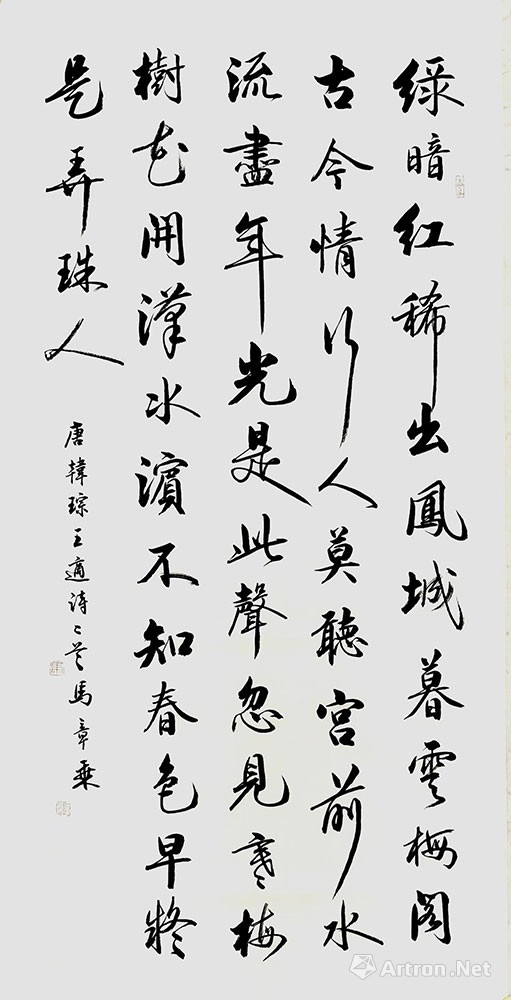 綠暗紅稀出鳳城暮雲樓閣
古今情行人莫聽宮前水
流盡年光是此聲忽見寒梅
樹花開漢水濱不知春色早疑
是弄珠人
唐韓琮王適詩二首馬章乘
Artron.Net